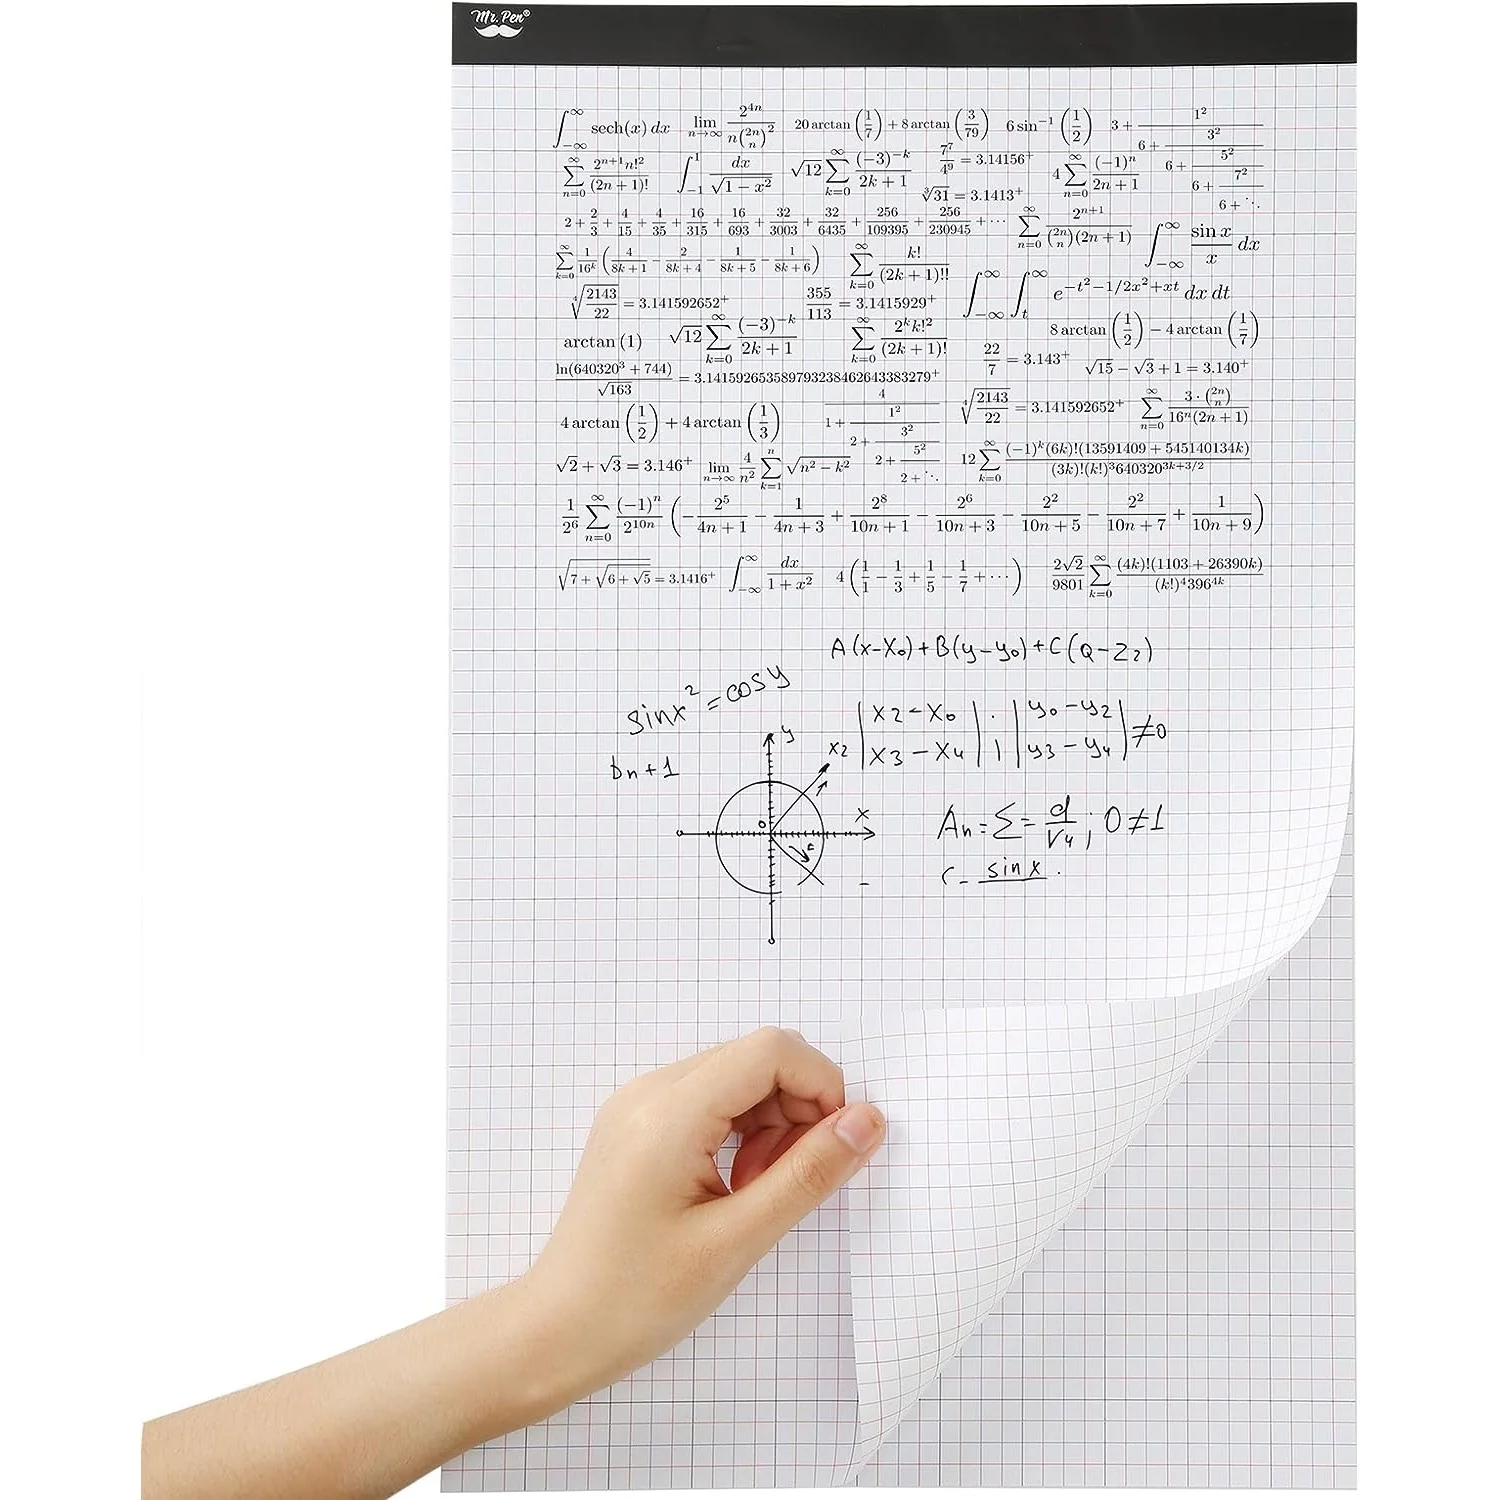 Mr. Pen®
∫_{-∞}^{∞} sech(x) dx   lim_{n→∞} 2^{4n} / (n (2n choose n)^2)   20 arctan(1/7) + 8 arctan(3/79)   6 sin^{-1}(1/2)   3 + 1²/(6 + 3²/(6 + 5²/(6 + 7²/(6 + ⋱))))
∑_{n=0}^{∞} 2^{n+1} n!² / (2n+1)!   ∫_{-1}^{1} dx/√(1−x²)   √12 ∑_{k=0}^{∞} (−3)^{−k} / (2k+1)   7⁷/4⁹ = 3.14156⁺   4 ∑_{n=0}^{∞} (−1)ⁿ / (2n+1)
∛31 = 3.1413⁺
2 + 2/3 + 4/15 + 4/35 + 16/315 + 16/693 + 32/3003 + 32/6435 + 256/109395 + 256/230945 + ⋯   ∑_{n=0}^{∞} 2^{n+1} / ((2n choose n)(2n+1))   ∫_{-∞}^{∞} (sin x / x) dx
∑_{k=0}^{∞} 1/16^k (4/(8k+1) − 2/(8k+4) − 1/(8k+5) − 1/(8k+6))   ∑_{k=0}^{∞} k! / (2k+1)!!
∜(2143/22) = 3.141592652⁺   355/113 = 3.1415929⁺   ∫_{-∞}^{∞} ∫_{t}^{∞} e^{−t²−1/2x²+xt} dx dt
arctan (1)   √12 ∑_{k=0}^{∞} (−3)^{−k} / (2k+1)   ∑_{k=0}^{∞} 2^k k!² / (2k+1)!   8 arctan(1/2) − 4 arctan(1/7)
22/7 = 3.143⁺   √15 − √3 + 1 = 3.140⁺
ln(640320³ + 744)/√163 = 3.14159265358979323846264338​3279⁺
4 arctan(1/2) + 4 arctan(1/3)   4/(1 + 1²/(2 + 3²/(2 + 5²/(2 + ⋱))))   ∜(2143/22) = 3.141592652⁺   ∑_{n=0}^{∞} 3·(2n choose n) / (16ⁿ(2n+1))
√2 + √3 = 3.146⁺   lim_{n→∞} 4/n² ∑_{k=1}^{n} √(n² − k²)   12 ∑_{k=0}^{∞} (−1)^k (6k)!(13591409 + 545140134k) / ((3k)!(k!)³640320^{3k+3/2})
1/2⁶ ∑_{n=0}^{∞} (−1)ⁿ/2^{10n} (−2⁵/(4n+1) − 1/(4n+3) + 2⁸/(10n+1) − 2⁶/(10n+3) − 2²/(10n+5) − 2²/(10n+7) + 1/(10n+9))
√(7 + √(6 + √5)) = 3.1416⁺   ∫_{-∞}^{∞} dx/(1+x²)   4 (1/1 − 1/3 + 1/5 − 1/7 + ⋯)   2√2/9801 ∑_{k=0}^{∞} (4k)!(1103 + 26390k) / ((k!)⁴396^{4k})
A(x−X₀)+B(y−y₀)+C(Q−Z₂)
sinx² = cosy
|x2−X0| . |y0−y2| ≠0
|X3−X4| |y3−y4|
bn+1
y
x2
x
0
An = Σ = d/√4; 0≠1
C = sinx